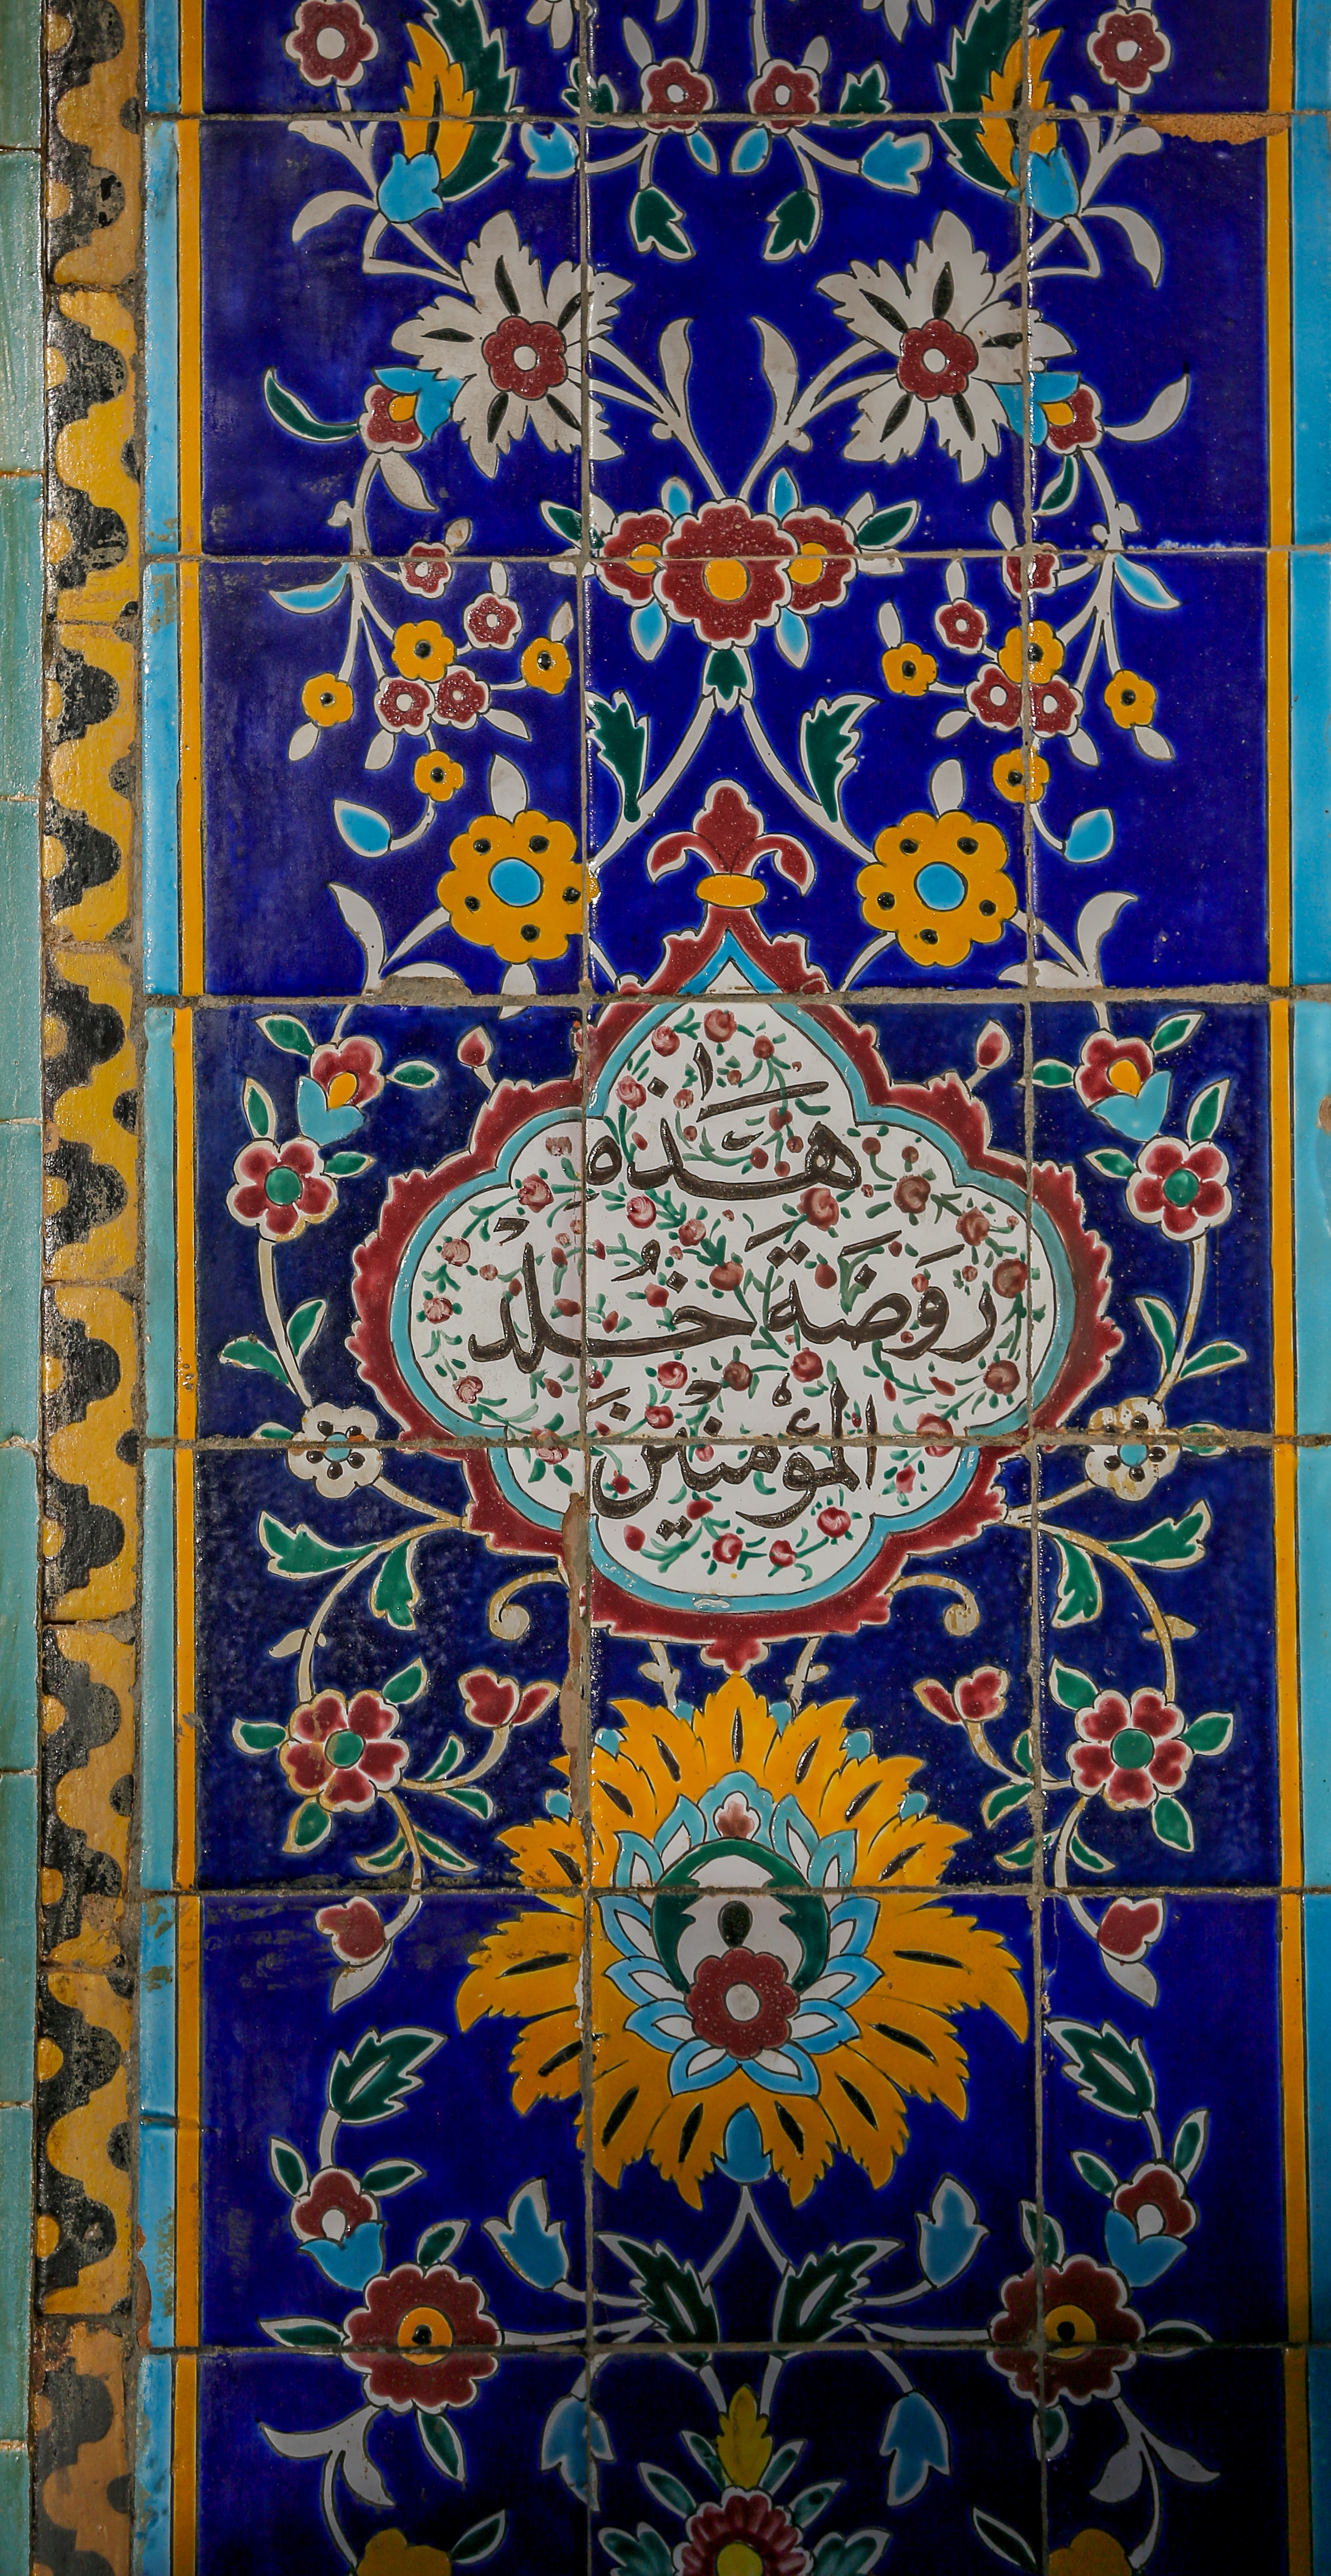 هَذِهِ
رَوْضَةُ خُلْدٍ
المُؤْمِنُيْنَ